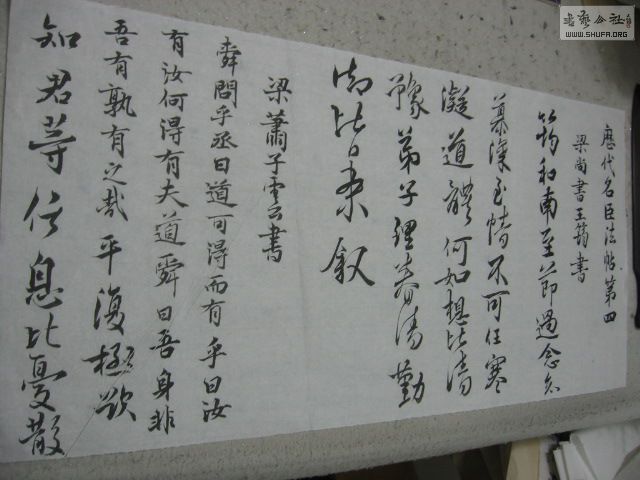 歷代名臣法帖第四
梁尚書王筠書
筠和南至節過念
慕深至情不可任寒
凝道體何如想比清
豫弟子理春清勤
比
叙
梁蕭子雲書
舜問乎丞曰道可得而有乎曰汝
有汝何得有夫道舜曰吾身非
吾有孰有之哉平復極欲
知君等信息比憂散
書藝公社
WWW.SHUFA.ORG